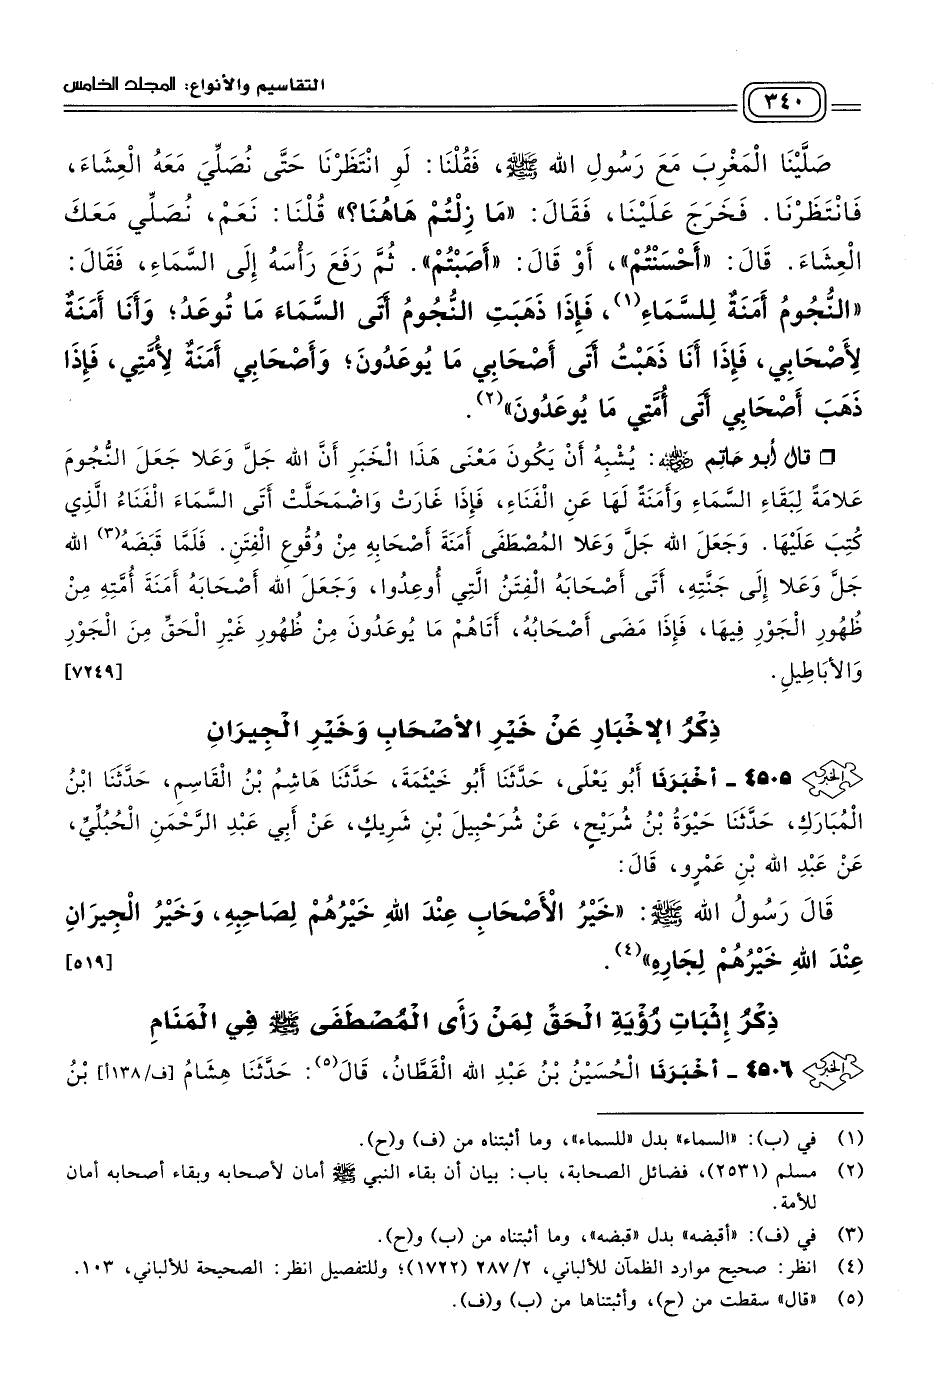 التقاسيم والأنواع: المجلد الخامس
٣٤٠
صَلَّيْنَا الْمَغْرِبَ مَعَ رَسُولِ الله ﷺ، فَقُلْنَا: لَوِ انْتَظَرْنَا حَتَّى نُصَلِّيَ مَعَهُ الْعِشَاءَ،
فَانْتَظَرْنَا. فَخَرَجَ عَلَيْنَا، فَقَالَ: «مَا زِلْتُمْ هَاهُنَا؟» قُلْنَا: نَعَمْ، نُصَلِّي مَعَكَ
الْعِشَاءَ. قَالَ: «أَحْسَنْتُمْ»، أَوْ قَالَ: «أَصَبْتُمْ». ثُمَّ رَفَعَ رَأْسَهُ إِلَى السَّمَاءِ، فَقَالَ:
«النُّجُومُ أَمَنَةٌ لِلسَّمَاءِ(١)، فَإِذَا ذَهَبَتِ النُّجُومُ أَتَى السَّمَاءَ مَا تُوعَدُ؛ وَأَنَا أَمَنَةٌ
لِأَصْحَابِي، فَإِذَا أَنَا ذَهَبْتُ أَتَى أَصْحَابِي مَا يُوعَدُونَ؛ وَأَصْحَابِي أَمَنَةٌ لِأُمَّتِي، فَإِذَا
ذَهَبَ أَصْحَابِي أَتَى أُمَّتِي مَا يُوعَدُونَ»(٢).
□ قال أبو حاتم رضي الله عنه: يُشْبِهُ أَنْ يَكُونَ مَعْنَى هَذَا الْخَبَرِ أَنَّ الله جَلَّ وَعَلا جَعَلَ النُّجُومَ
عَلامَةً لِبَقَاءِ السَّمَاءِ وَأَمَنَةً لَهَا عَنِ الْفَنَاءِ، فَإِذَا غَارَتْ وَاضْمَحَلَّتْ أَتَى السَّمَاءَ الْفَنَاءُ الَّذِي
كُتِبَ عَلَيْهَا. وَجَعَلَ الله جَلَّ وَعَلا المُصْطَفَى أَمَنَةَ أَصْحَابِهِ مِنْ وُقُوعِ الْفِتَنِ. فَلَمَّا قَبَضَهُ(٣) الله
جَلَّ وَعَلا إِلَى جَنَّتِهِ، أَتَى أَصْحَابَهُ الْفِتَنُ الَّتِي أُوعِدُوا، وَجَعَلَ الله أَصْحَابَهُ أَمَنَةَ أُمَّتِهِ مِنْ
ظُهُورِ الْجَوْرِ فِيهَا، فَإِذَا مَضَى أَصْحَابُهُ، أَتَاهُمْ مَا يُوعَدُونَ مِنْ ظُهُورِ غَيْرِ الْحَقِّ مِنَ الْجَوْرِ
وَالأَبَاطِيلِ. [٧٢٤٩]
ذِكْرُ الإِخْبَارِ عَنْ خَيْرِ الأَصْحَابِ وَخَيْرِ الْجِيرَانِ
٤٥٠٥ ـ أَخْبَرَنَا أَبُو يَعْلَى، حَدَّثَنَا أَبُو خَيْثَمَةَ، حَدَّثَنَا هَاشِمُ بْنُ الْقَاسِمِ، حَدَّثَنَا ابْنُ
الْمُبَارَكِ، حَدَّثَنَا حَيْوَةُ بْنُ شُرَيْحٍ، عَنْ شُرَحْبِيلَ بْنِ شَرِيكٍ، عَنْ أَبِي عَبْدِ الرَّحْمَنِ الْحُبُلِّيِّ،
عَنْ عَبْدِ الله بْنِ عَمْرٍو، قَالَ:
قَالَ رَسُولُ الله ﷺ: «خَيْرُ الْأَصْحَابِ عِنْدَ اللهِ خَيْرُهُمْ لِصَاحِبِهِ، وَخَيْرُ الْجِيرَانِ
عِنْدَ اللهِ خَيْرُهُمْ لِجَارِهِ»(٤). [٥١٩]
ذِكْرُ إِثْبَاتِ رُؤْيَةِ الْحَقِّ لِمَنْ رَأَى الْمُصْطَفَى ﷺ فِي الْمَنَامِ
٤٥٠٦ ـ أَخْبَرَنَا الْحُسَيْنُ بْنُ عَبْدِ الله الْقَطَّانُ، قَالَ(٥): حَدَّثَنَا هِشَامُ [ف/١٣٨أ] بْنُ
(١) في (ب): «السماء» بدل «للسماء»، وما أثبتناه من (ف) و(ح).
(٢) مسلم (٢٥٣١)، فضائل الصحابة، باب: بيان أن بقاء النبي ﷺ أمان لأصحابه وبقاء أصحابه أمان
للأمة.
(٣) في (ف): «أقبضه» بدل «قبضه»، وما أثبتناه من (ب) و(ح).
(٤) انظر: صحيح موارد الظمآن للألباني، ٢/ ٢٨٧ (١٧٢٢)؛ وللتفصيل انظر: الصحيحة للألباني، ١٠٣.
(٥) «قال» سقطت من (ح)، وأثبتناها من (ب) و(ف).